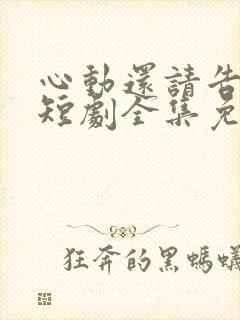 心動還請告
短劇全集免
狂奔的黑螞蟻